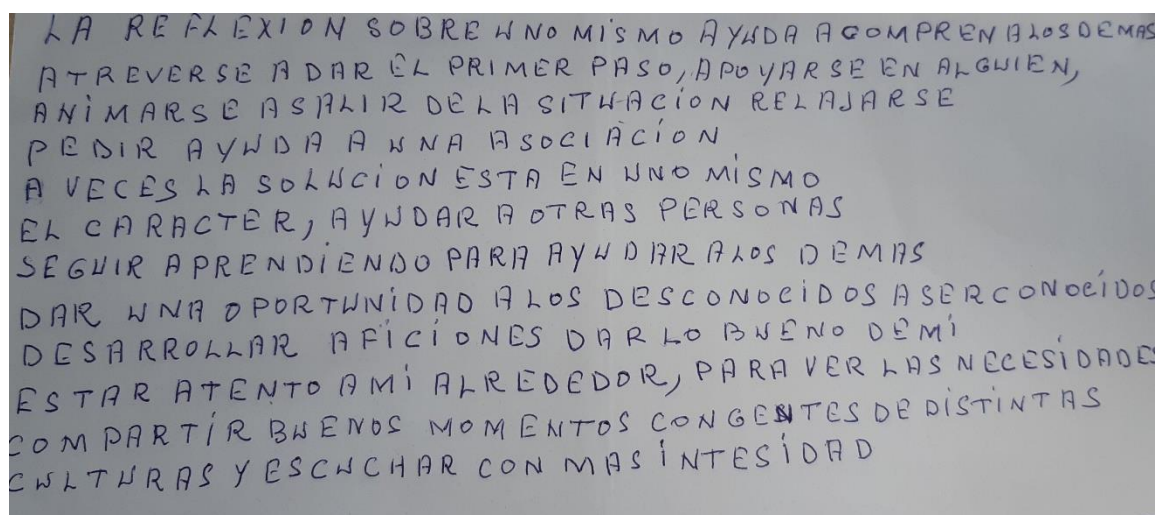 LA REFLEXION SOBRE UNO MiSMO AYUDA A COMPREN A LOS DEMAS
ATREVERSE A DAR EL PRIMER PASO, APOYARSE EN ALGUIEN,
ANiMARSE A SALIR DE LA SITUACiON RELAJARSE
PEDIR AYUDA A UNA ASOCIACiON
A VECES LA SOLUCiON ESTA EN UNO MiSMO
EL CARACTER, AYUDAR A OTRAS PERSONAS
SEGUIR APRENDiENDO PARA AYUDAR A LOS DEMAS
DAR UNA OPORTUNiDAD A LOS DESCONOCiDOS A SER CONOCiDOS
DESARROLLAR AFiCiONES DAR LO BUENO DE Mi
ESTAR ATENTO A Mi ALREDEDOR, PARA VER LAS NECESiDADES
COMPARTiR BUENOS MOMENTOS CON GENTES DE DiSTiNTAS
CULTURAS Y ESCUCHAR CON MAS iNTESiDAD